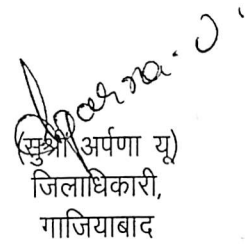 (सुश्री अर्पणा यू)
जिलाधिकारी,
गाजियाबाद